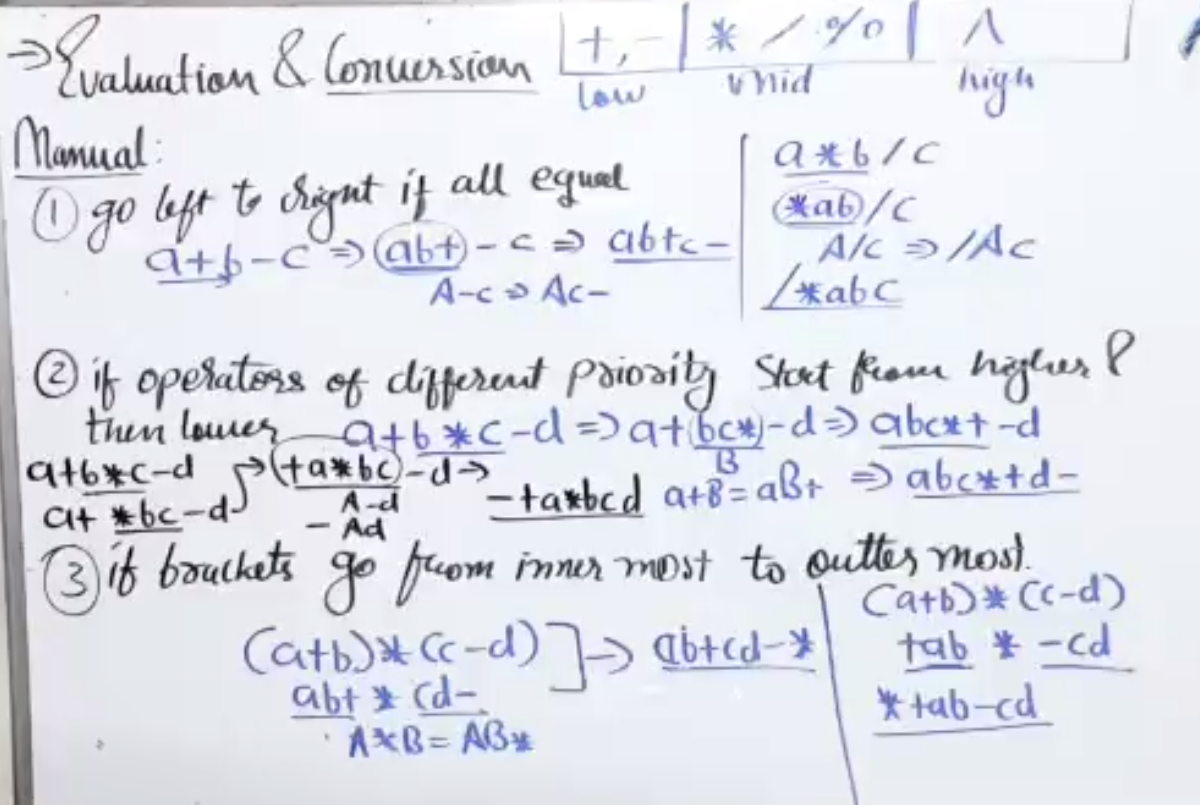 ⇒ Evaluation & Conversion
+,- | * / % | ^
low mid high
Manual:
① go left to right if all equal
a+b-c ⇒ (ab+) - c ⇒ ab+c-
A-c ⇒ Ac-
a*b/c
(*ab)/c
A/c ⇒ /Ac
/*abc
② if operators of different priority start from higher &
then lower a+b*c-d => a+(bc*)-d => abc*+-d
B
a+B = aB+ => abc*+d-
a+b*c-d
a+ *bc-d → (+a*bc)-d →
A-d
- Ad
-+a*bcd
③ if brackets go from inner most to outter most.
(a+b)*(c-d) ] → ab+cd-*
ab+ * cd-
A*B = AB*
(a+b)*(c-d)
+ab * -cd
*+ab-cd